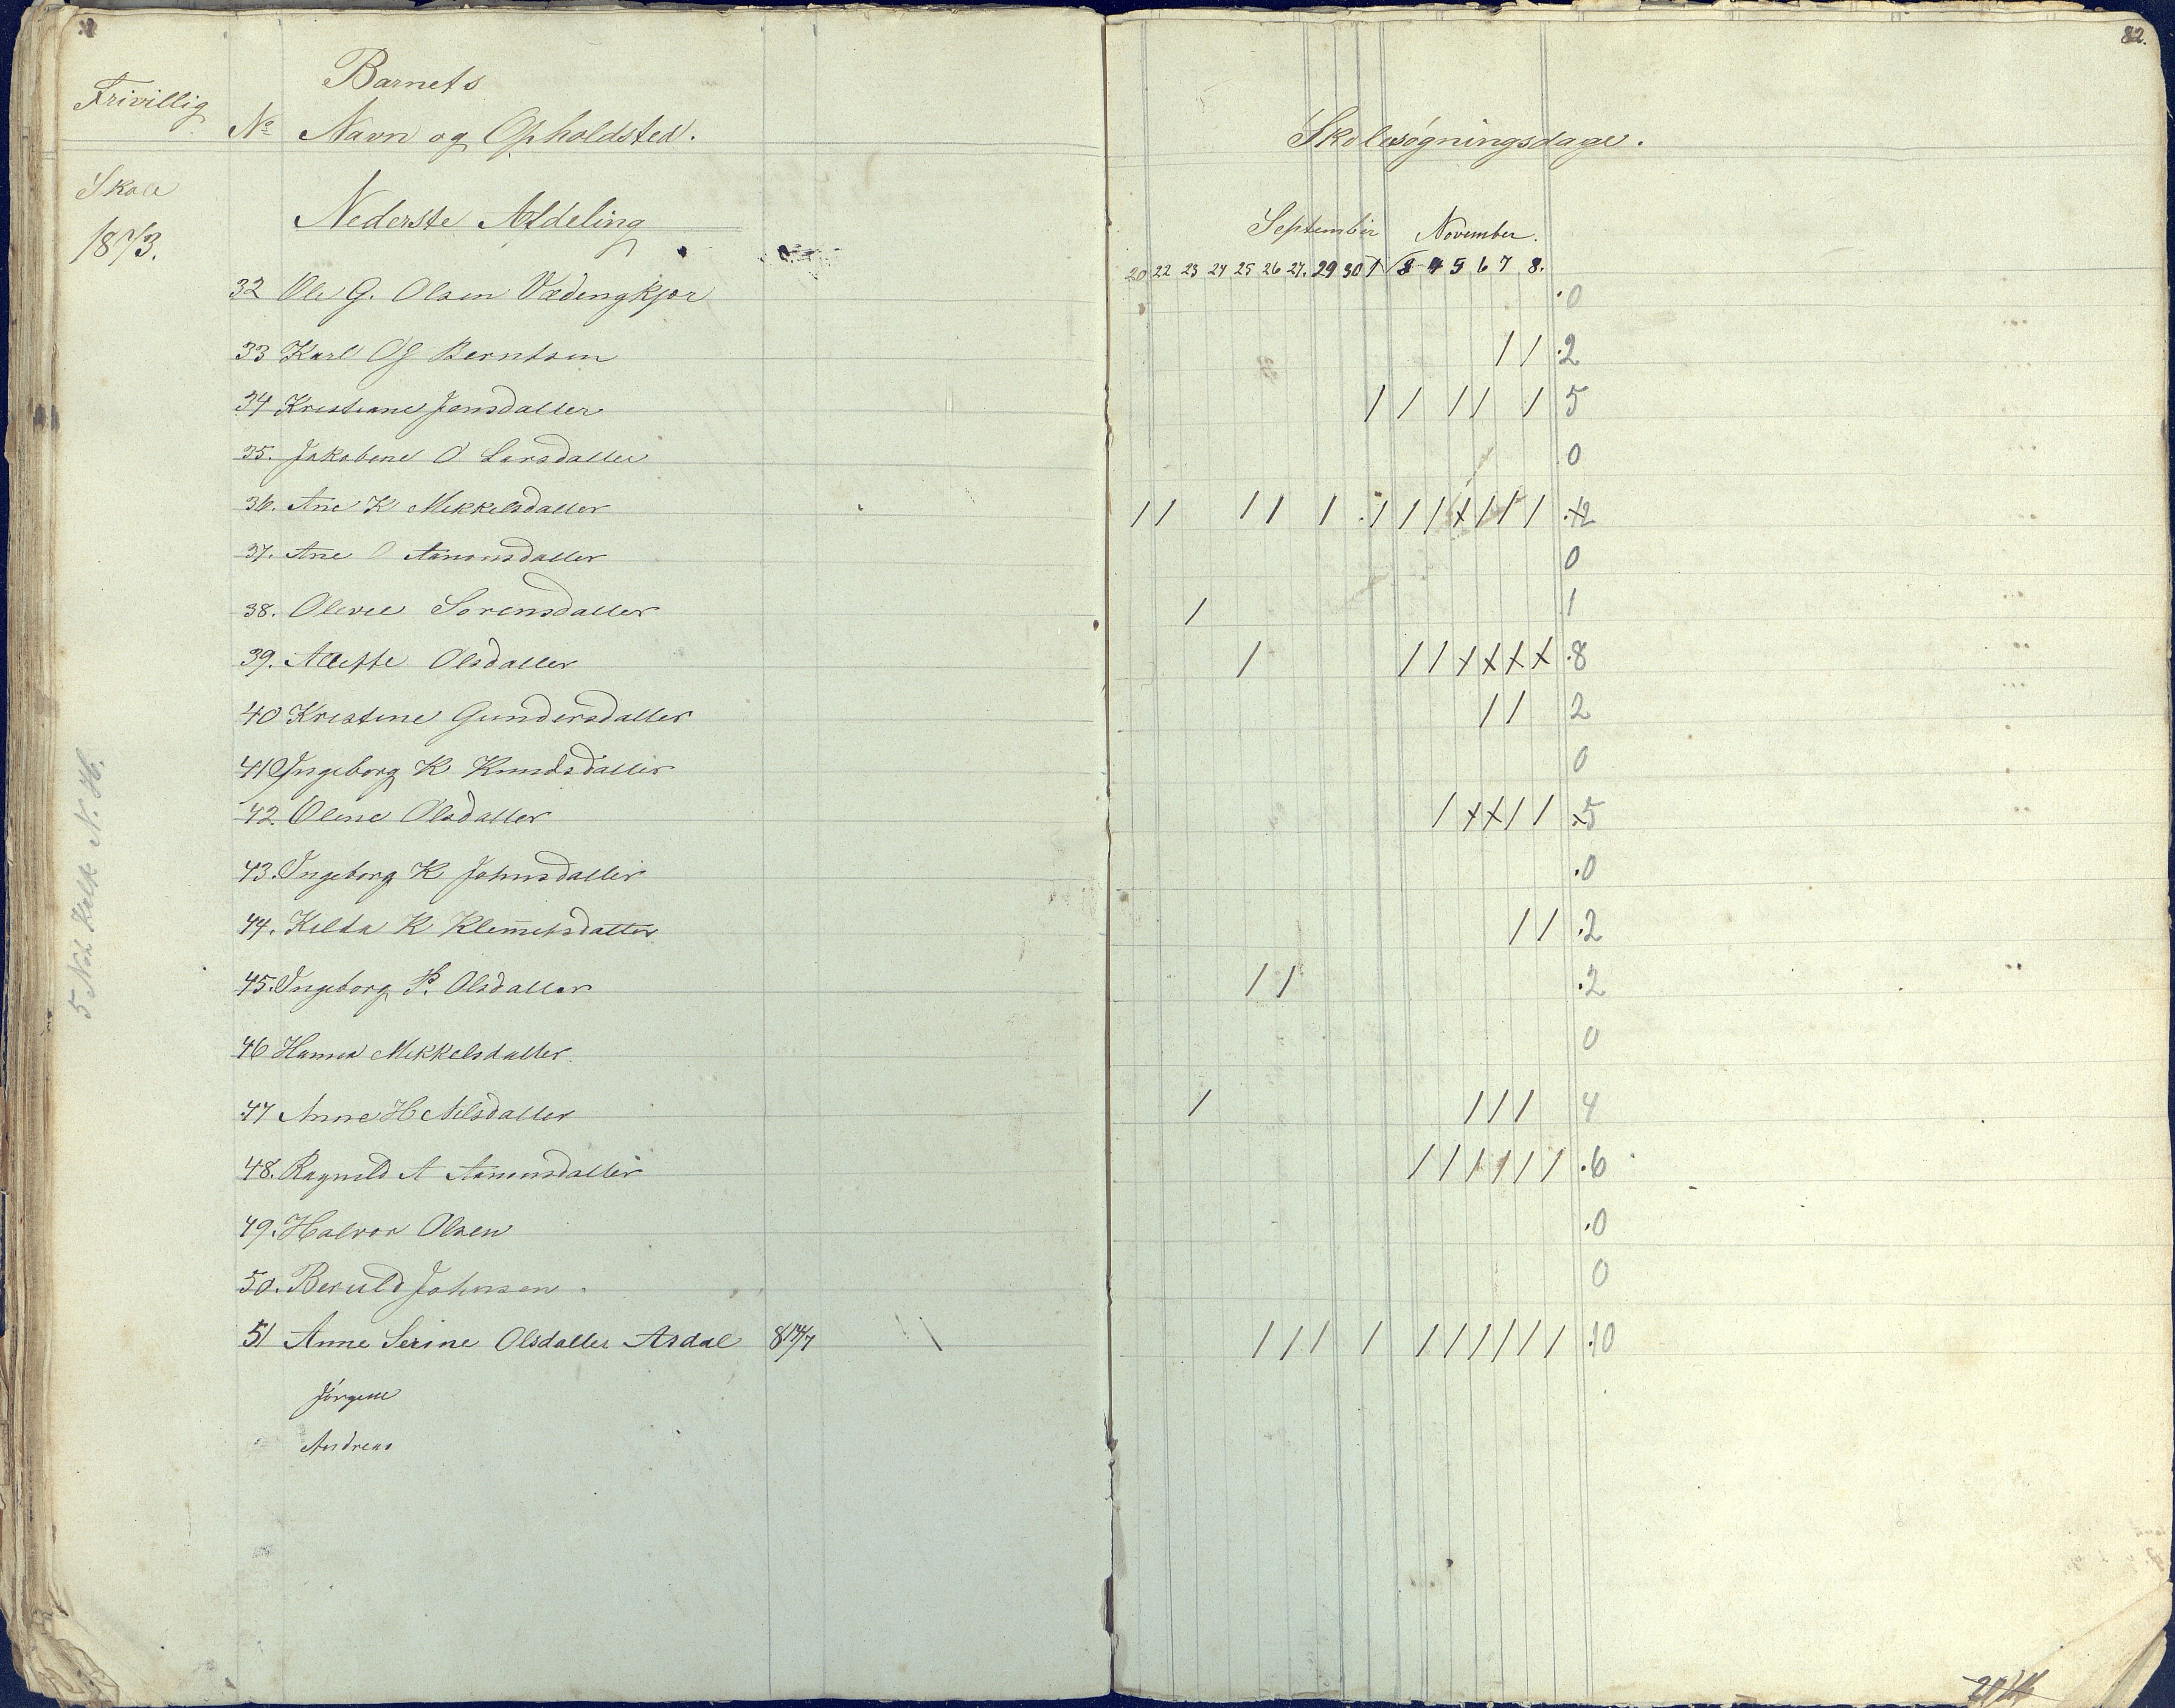 82.
Frivillig
Skole
1873.
Barnets
No Navn og Opholdsted.
Skolesøgningsdage.
Nederste Afdeling
September November.
20 22 23 24 25 26 27. 29 30 1 3 4 5 6 7 8.
32 Ole G. Olsen Vædengkjær 0
33 Karl Berntsen / / 2
34 Kristiane Jensdatter / / / / / 5
35. Jakobine O Larsdatter 0
36. Ane K Mikkelsdatter / / / / / / / / x / / / 12
37. Ane O Aanonsdatter 0
38. Olevie Sorensdatter / 1
39. Alleffe Olsdatter / / / x x x x 8
40 Kristine Gundersdatter / / 2
41 Ingeborg K Knudsdatter 0
42. Oline Olsdatter / x x / / 5
43. Ingeborg K Johnsdatter 0
44. Kilda K Klem̅etsdatter / / 2
45. Ingeborg P. Olsdatter / / 2
46 Hanna Mikkelsdatter. 0
47 Anne H Nilsdatter / / / / 4
48. Ragnild A Aanonsdatter / / / / / / 6
49. Halvor Olsen 0
50. Beruld Johnsen 0
51 Anne Serine Olsdatter Asdal 8 14/7 / / / / / / / / / / 10
Jörgine
Andreas